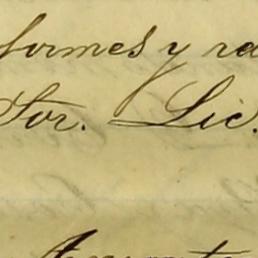 formes y ra
Sor. Lic.